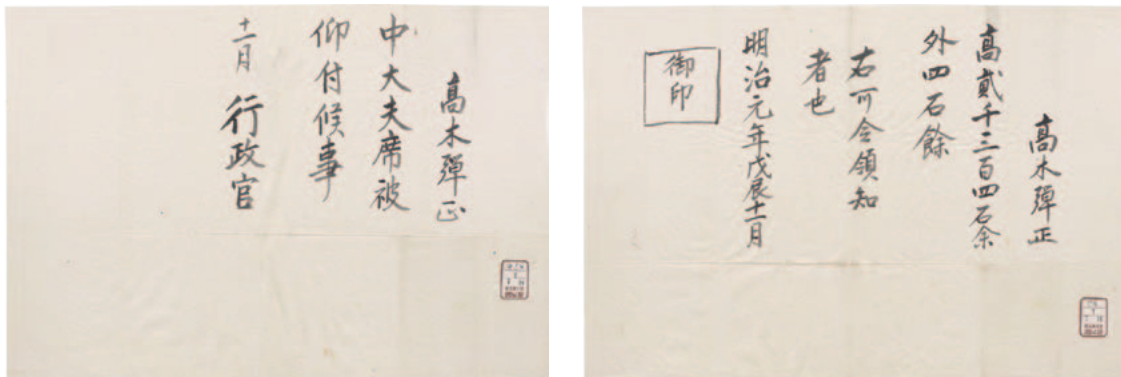 髙木弾正
中大夫席被
仰付候事
十一月 行政官
髙木弾正
髙貳千三百四石余
外四石餘
右可令領知
者也
明治元年戊辰十一月
御印